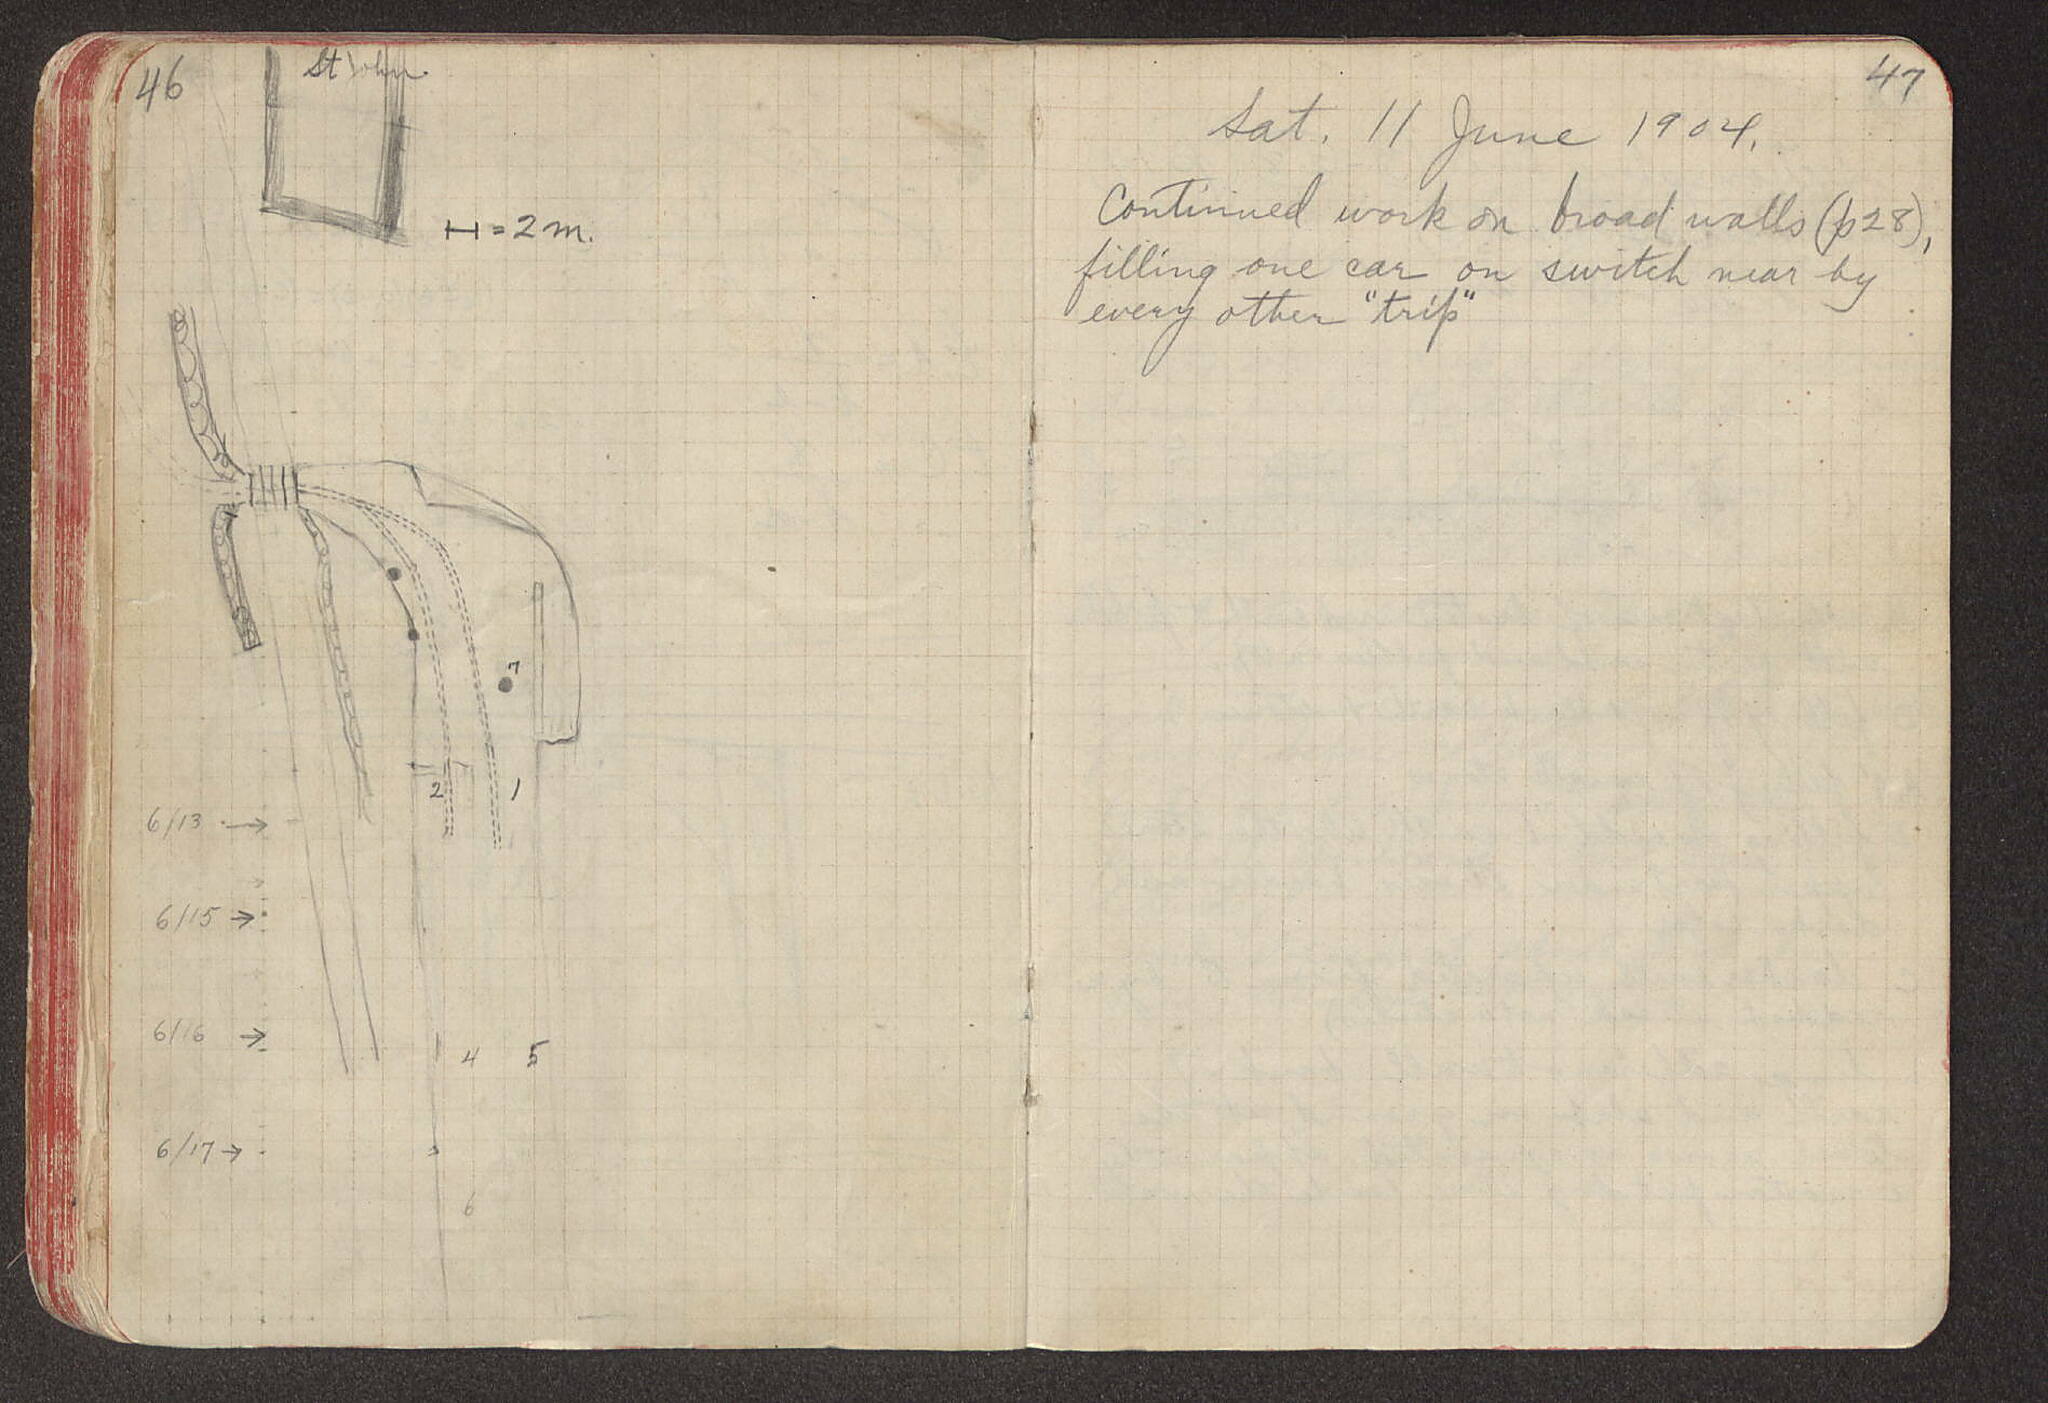 46
St John
H = 2 m.
7
2 1
6/13 →
6/15 →
6/16 →
4 5
6/17 →
6
47
Sat. 11 June 1904.
Continued work on broad walls (p28),
filling one car on switch near by
every other "trip"